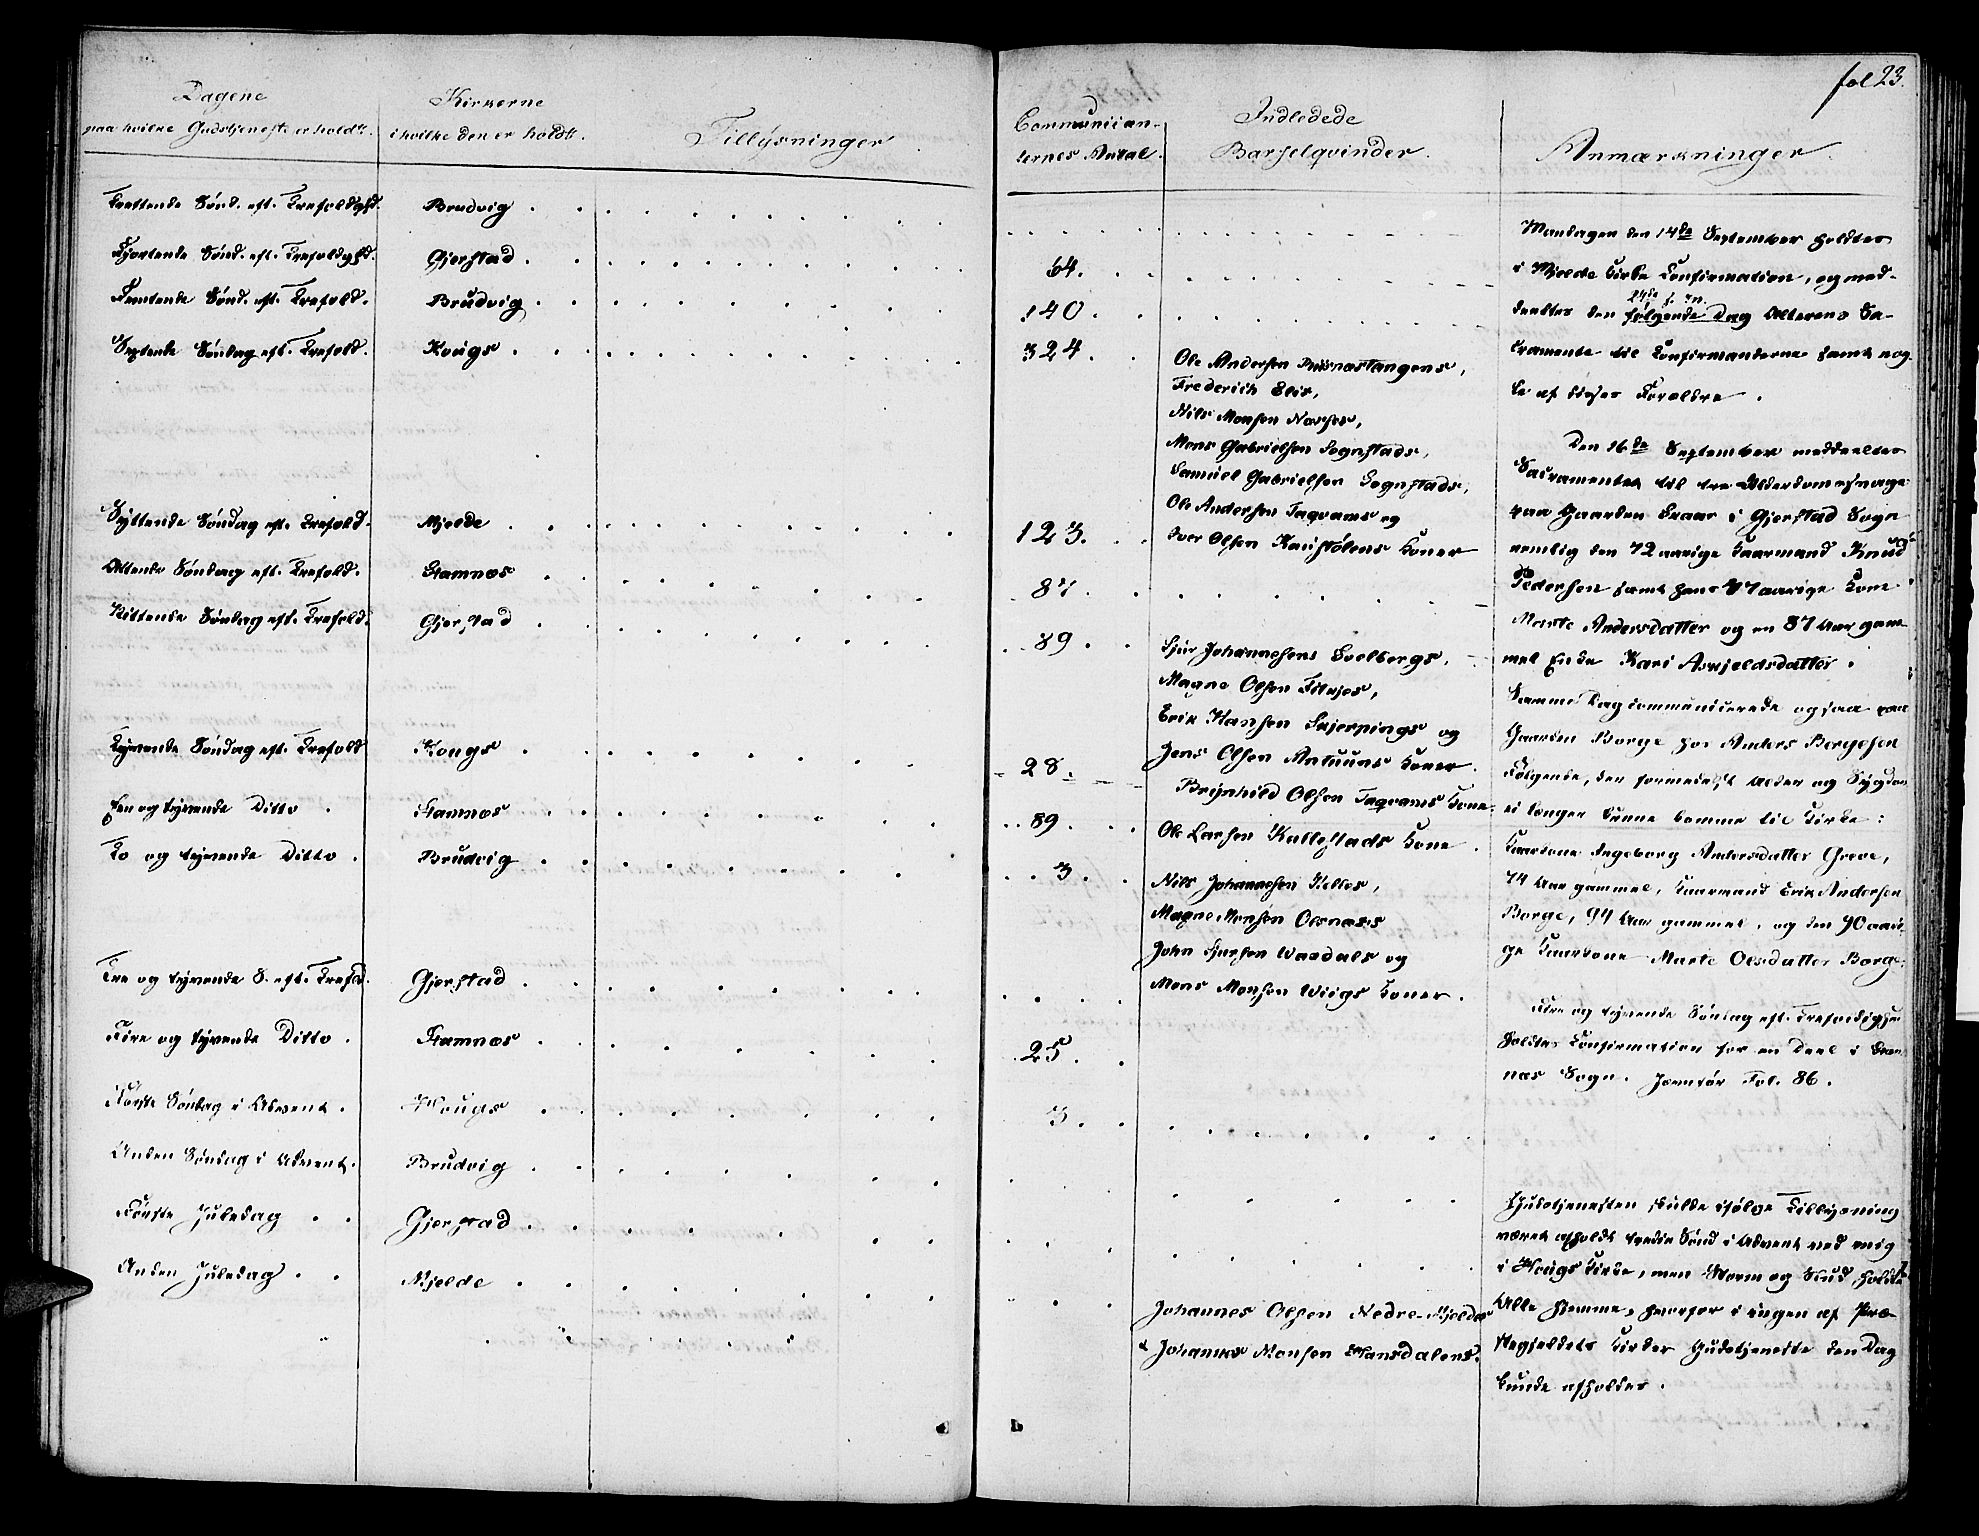 fol 23.
Dagene
paa hvilke Gudstjeneste er holdt.
Kirkerne
i hvilke den er holdt.
Tillysninger
Communican-
ternes Antal.
Indledede
Barselqvinder.
Anmærkninger.
Trettende Sønd. eft. Trefoldghd. Brudvig
Fjortende Sønd. eft. Trefoldghd. Gjerstad 64.
Femtende Sønd. eft. Trefold. Brudvig 140
Sextende Søndag eft. Trefold. Hougs 324
Ole Andersen
Frederich Elis,
Nils Monsen
Mons Gabrielsen Sognstads,
Samuel Gabrielsen Sognstads,
Ole Andersen Taqvams og
Iver Olsen Koner
Syttende Søndag eft. Trefold. Mjelde 123.
Attende Søndag eft. Trefold. Stamnes 87
Nittende Søndag eft. Trefold. Gjerstad 89
Sjur Johannesens
Magne Olsen
Erik Hansen og
Jens Olsen Koner.
Tyvende Søndag eft. Trefold Hougs 28.
Brynhild Olsen Taqvams Kone.
Een og tyvende Ditto. Stamnes 89
Ole Larsen Kallestads Kone.
To og tyvende Ditto. Brudvig 3
Nils Johannesen
Magne Monsen Olsnæs
John Sjursen Waadals og
Mons Monsen Wiigs Koner.
Tre og tyvende S. eft. Trefold. Gjerstad
Fire og tyvende Ditto. Stamnes 25.
Første Søndag i Advent. Hougs 3
Anden Søndag i Advent. Brudvig
Første Juledag Gjerstad
Anden Juledag Mjelde
Johannes Olsen Nedre-Mjeldes
& Johannes Monsen
Mandagen den 14de September holdtes
i Mjelde Kirke Confirmation, og med-
deeltes den følgende Dag Alterens Sa-
24de s. m.
cramente til Confirmanderne samt nog-
le af disses Forældre.
Den 16de September meddeeltes
Sacramentet til tre Alderdomssvage
paa Gaarden i Gjerstad Sogn
nemlig den 72 aarige Kaarmand Knud
Pedersen samt hans 77 aarige Kone
Marte Andersdatter og en 87 Aar gam-
mel Enke Kari Askjeldsdatter.
Samme Dag communicerede ogsaa paa
Gaarden Borge hos Anders Borgesen
Følgende, der formedelst Alder og Sygdom
ei længer kunne komme til Kirke:
Kaarkone Ingeborg Andersdatter Greve,
74 Aar gammel, Kaarmand Erik Andersen
Borge, 94 Aar gammel, og den 90 aari-
ge Kaarkone Marte Olsdatter Borge.
Fire og tyvende Søndag eft. Trefoldighed
holdtes Confirmation for en Deel i Stam-
næs Sogn. Jevnfør Fol. 86.
Gudstjenesten skulde ifølge Tillysning
været afholdt tredie Sønd i Advent ved mig
i Hougs Kirke, men Storm og Slud holdt
Alle hjemme, hvorfor i ingen af Præ-
stegjeldets Kirker Gudstjeneste den Dag
kunde afholdes.